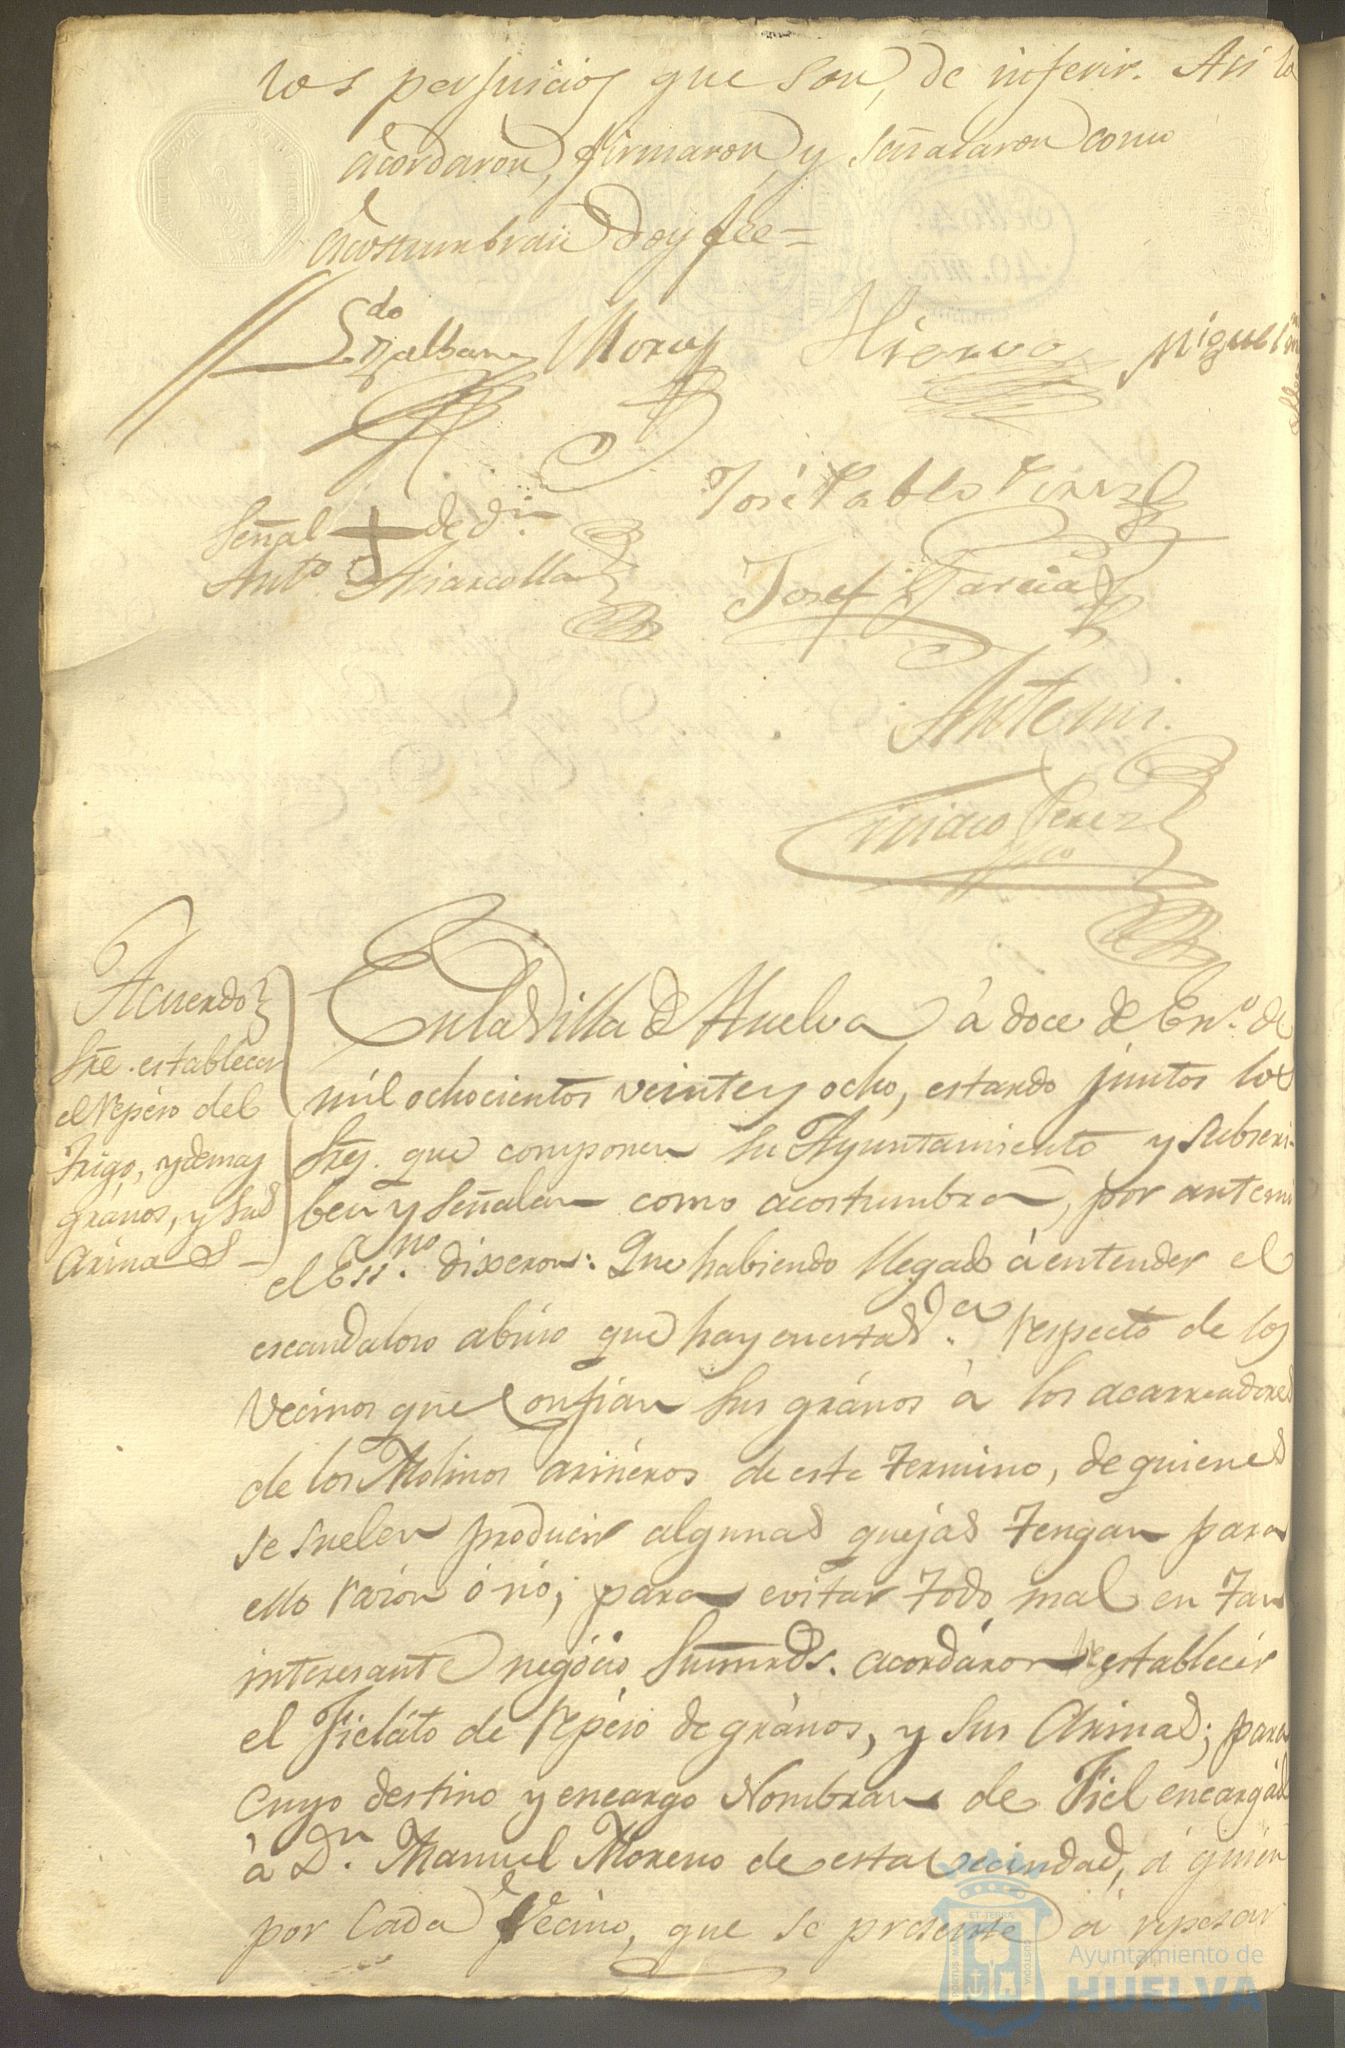 los perjuicios que son de inferir. Asi lo
acordaron, firmaron, y señalaron como
acostumbran Doy fee=
Ldo Zalbans Mora Hierro Miguel
José Pablo Perez
Señal + de Dn.
Anto. Marcolla
Josef Garcia
Antemi.
Ciriaco Perez
Acuerdo
Sre. establecer
el repéso del
Trigo, y demas
grános, y sus
Arinas
En la Villa de Huelva à doce de Eno. de
mil ochocientos veinte y ocho, estando juntos los
Sres. que componen su Ayuntamiento y subscri-
ben y señalan como acostumbran, por antemi
el Essno. dixeron: Que habiendo llegado à entender el
escandaloso abuso que hay en esta Va. respecto de los
Vecinos que confian sus grános à los acarreadores
de los Molinos arinéros de este termino, de quienes
se suelen producir algunas quejas tengan para
ello razón ó nó; para evitar todo mal en tan
interesante negócio Sumrds. acordáron restablecér
el Fieláto de repéso de grános, y sus Arinas; para
cuyo destino y encargo Nombran de Fiel encargád
à Dn. Manuel Moreno de esta vecindad, á quien
por cada Vecino, que se presente á repesar
Ayuntamiento de
HUELVA